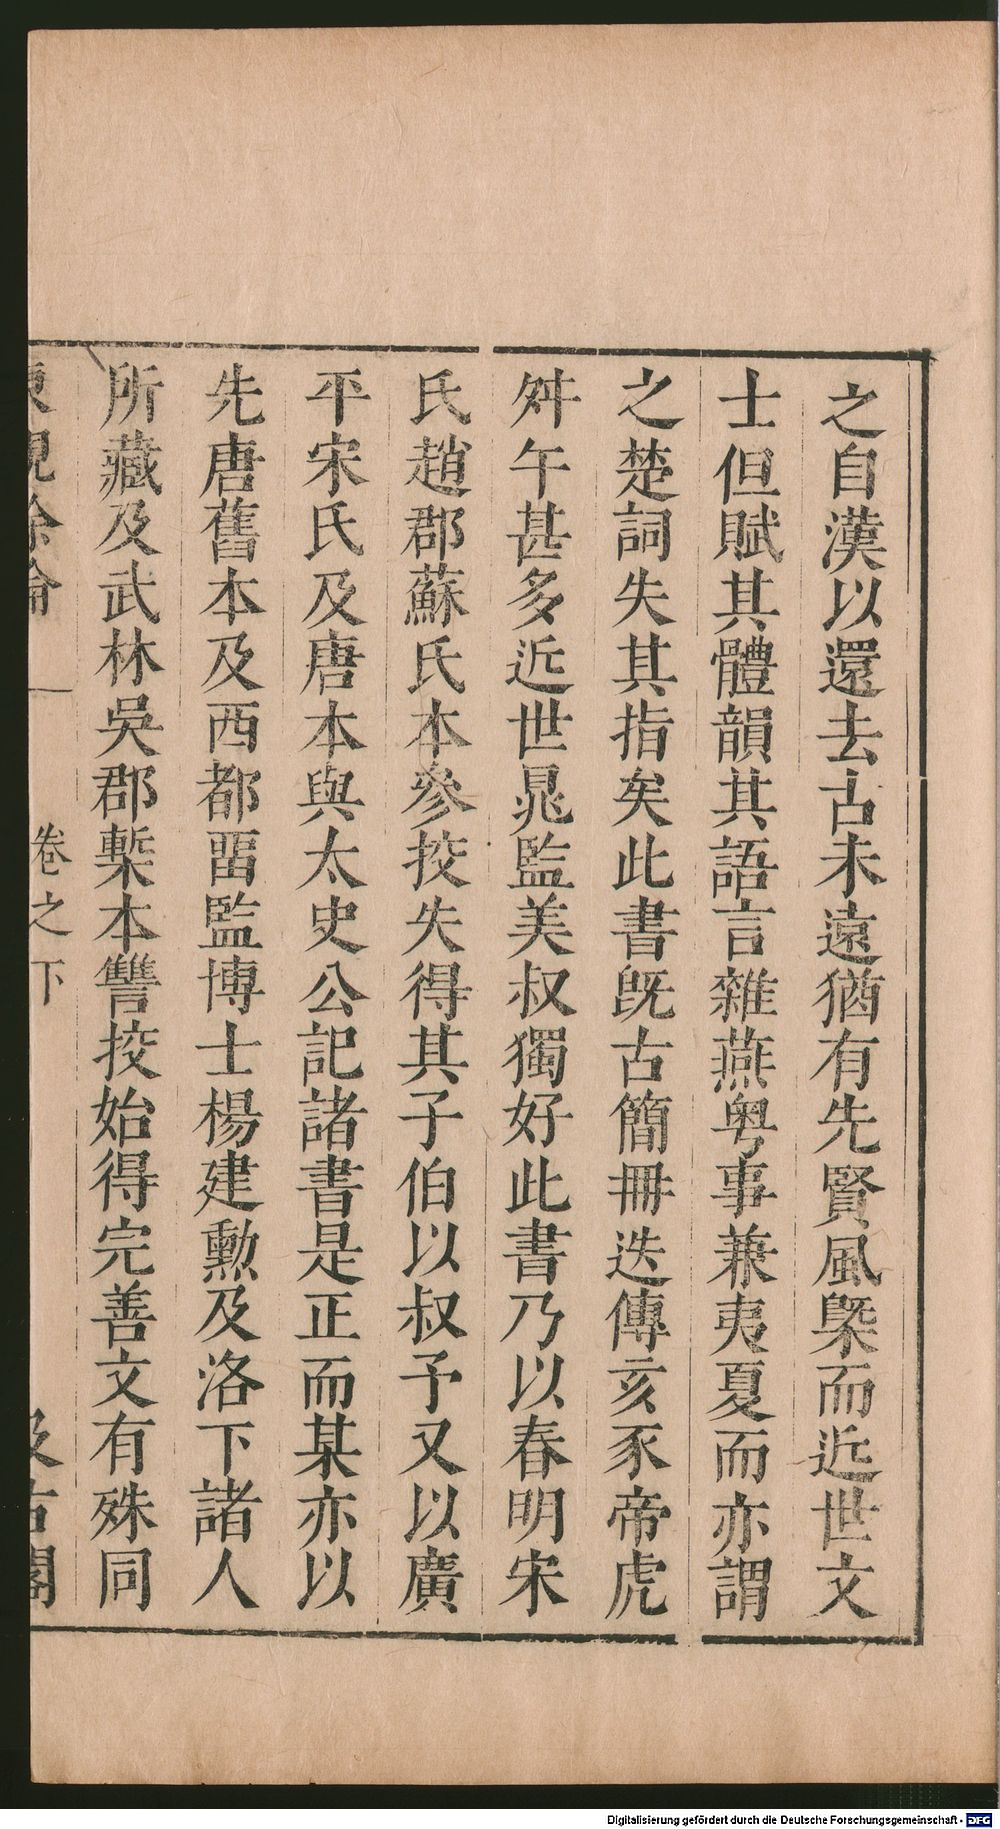 之自漢以還去古未遠猶有先賢風槩而近世文
士但賦其體韻其語言雜燕粤事兼夷夏而亦謂
之楚詞失其指矣此書旣古簡冊迭傳亥豕帝虎
舛午甚多近世晁監美叔獨好此書乃以春明宋
氏趙郡蘇氏本參挍失得其子伯以叔予又以廣
平宋氏及唐本與太史公記諸書是正而某亦以
先唐舊本及西都畱監博士楊建勲及洛下諸人
所藏及武林吳郡槧本讐挍始得完善文有殊同
東觀餘論
卷之下
汲古閣
Digitalisierung gefördert durch die Deutsche Forschungsgemeinschaft - DFG